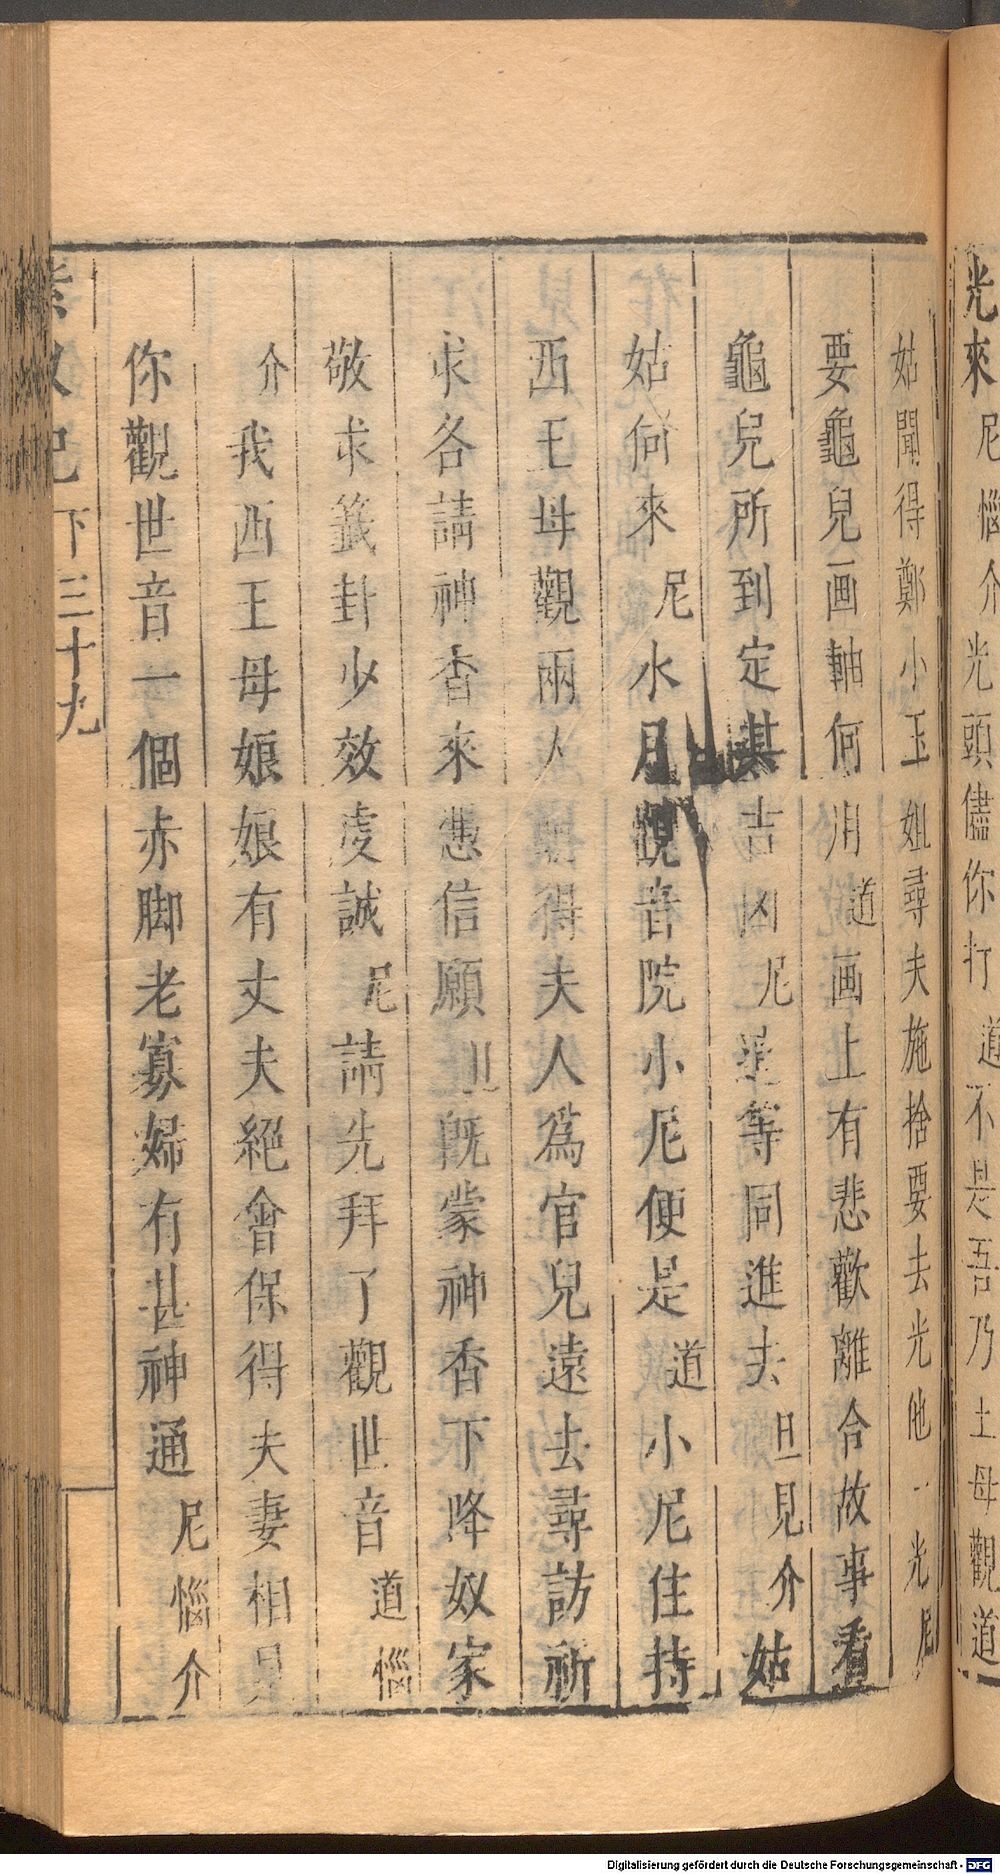 光來尼惱介光頭儘你打道不是吾乃土母觀道
姑聞得鄭小玉姐尋夫施捨要去光他一光尼
要龜兒画軸何用道画上有悲歡離合故事看
龜兒所到定其吉凶尼等同進去旦見介姑
姑何來尼水月觀音院小尼便是道小尼住持
西王母觀兩人得夫人為官兒遠去尋訪祈
求各請神香來憑信願旦既蒙神香下降奴家
敬求籤卦少效虔誠尼請先拜了觀世音道惱
介我西王母娘娘有丈夫絕會保得夫妻相見
你觀世音一個赤脚老寡婦有甚神通尼惱介
紫釵記 下三十九
Digitalisierung gefördert durch die Deutsche Forschungsgemeinschaft - DFG